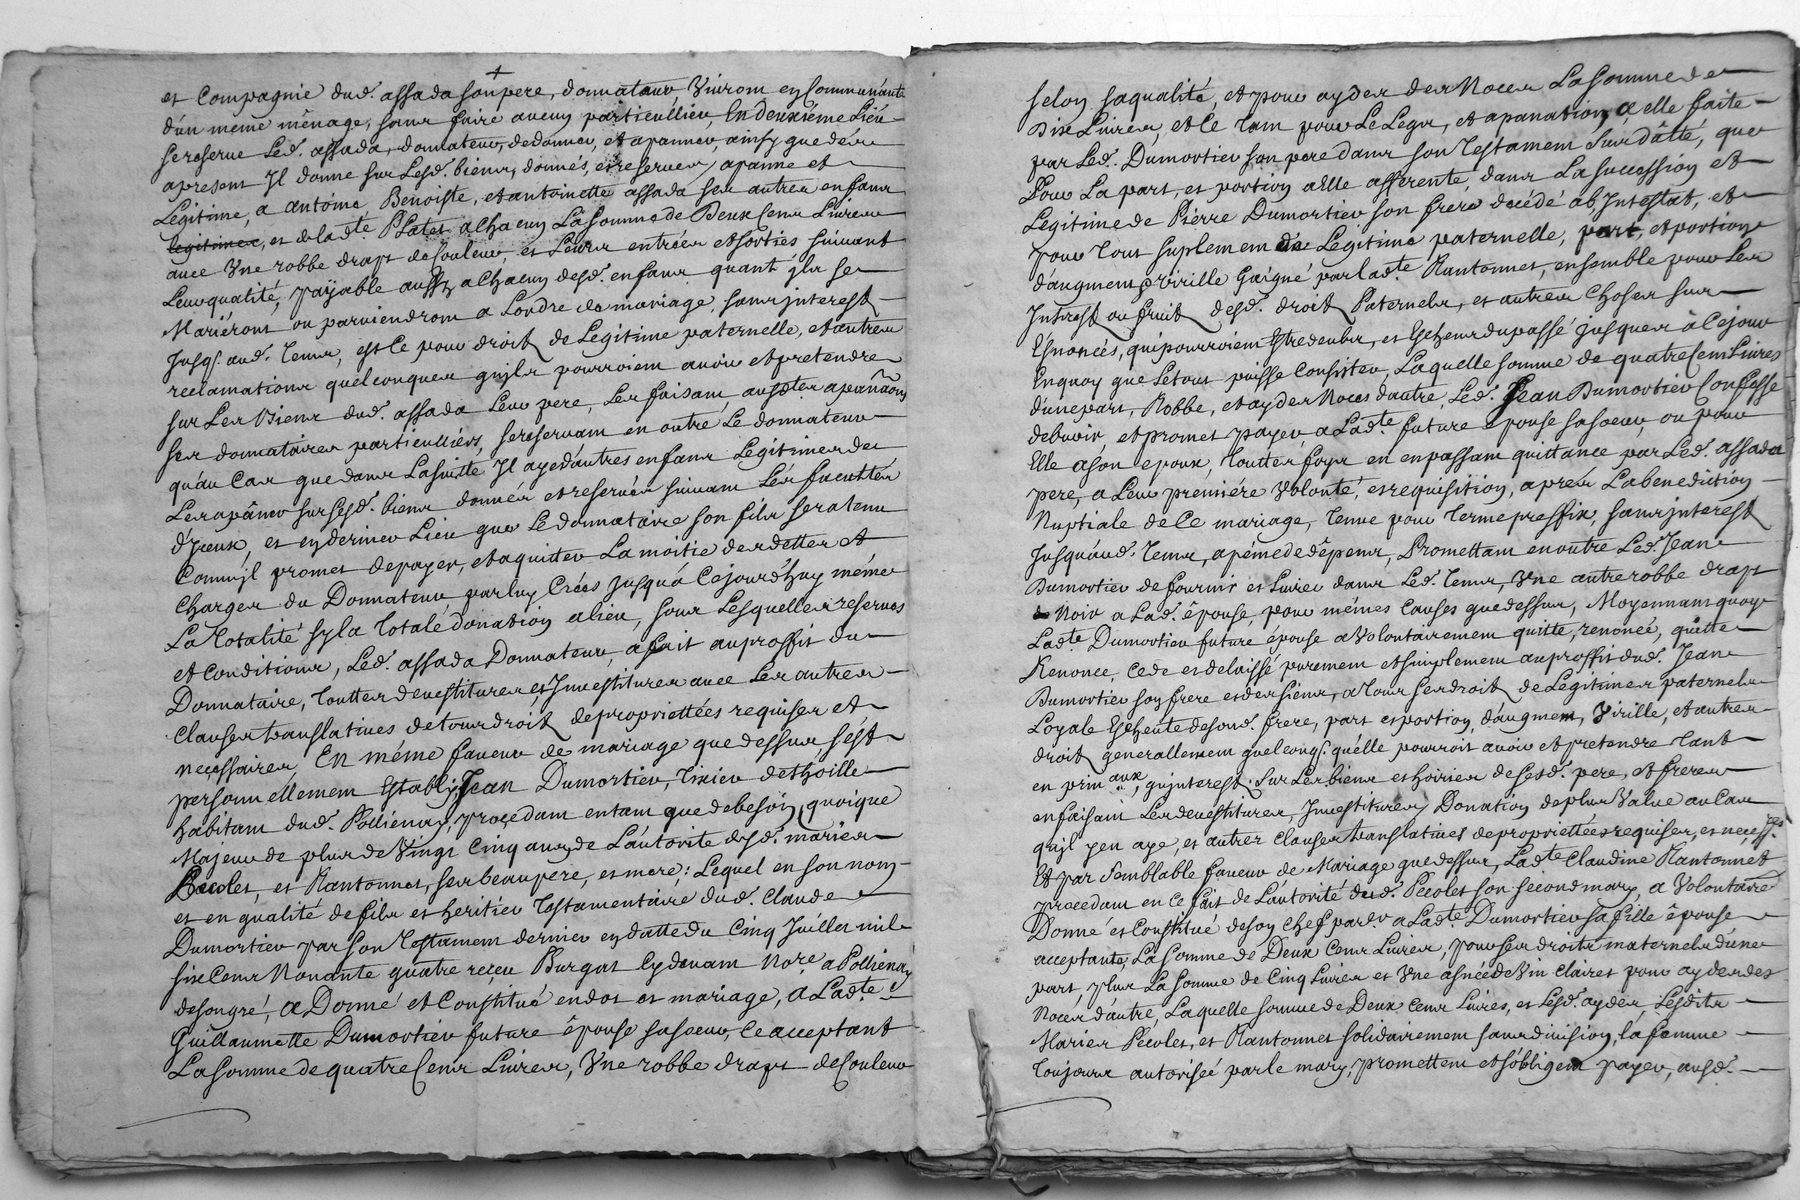 et Compagnie dud. assada son pere, donnateur Vivront en Communauté
d'un meme ménage, sans faire aucun particullier, En deuxiéme Lieu
se reserve Led. assada, donnateur, de donner, et apanner, ainsy que dés
apresent Il donne sur Lesd. biens, donnés, et reservés, apanne et
Legitime, a antôine Benoiste, et antoinette assada ses autres enfans
et de lad.te Platet a Chacun La somme de Deux Cens Livres
avec Vne robbe drapt de Couleur, et Leurs entrées et sorties suivant
Leur qualité, payable aussy a Chacun desd. enfans quant jls se
Mariéront ou parviendront a L'ordre de mariage, sans jnterest
Jusq. aud. tems, est Ce pour droit de Legitime paternelle, et autres
reclamations quelconques qu'jls pourroient avoir et pretendre
sur Les Biens dud. assada Leur pere, Les faisant ausd.tes apana͠on
ses donnataires particulliers, se reservant en outre Le donnateur
qu'au Cas que dans La suitte Il aye d'autres enfans Legitimes de
Les apâner sur sesd. biens donnés et reservés suivant Les facultés
d'jceux, et en dernier Lieu que Le donnataire son fils sera tenu
Comm'jl promet de payer, et aquitter La moitié des dettes et
Charges du Donnateur par luy Créés Jusqu'à Ce jourd'huy mémes
La totalité sy la totale donation a lieu, sous Lesquelles reserves
et Conditions, Led. assada Donnateur, a fait au proffit du
Donnataire, touttes devestitures et Jnvestitures avec Les autres
Clauses translatives de tous droit de propriettées requises et
necessaires, En méme faveur de mariage que dessus, s'est
personnellement Estably Jean Dumortier, tixier de thoille
habitant dud. Pollienay, procedant entant que de besoin, quoique
Majeur de plus de Vingt Cinq ans, de L'autorité desd. mariés
Pecolet, et Nantonnet, ses beaupere, et mere; Lequel en son nom
et en qualité de fils et heritier testamentaire dud. Claude
Dumortier par son testament dernier en datte du Cinq Juillet mil
six Cens Nonante quatre reçeu Burgat Cy devant No.re a Pollienay
de son gré, a Donné et Constitué en dot et mariage, a Lad.te
Guillaumette Dumortier future épouse sa soeur, Ce acceptant
La somme de quatre Cens Livres, Vne robbe drapt de Couleur
selon sa qualité, et pour ayder des Noces La somme de
Dix Livres, et Ce tant pour Le Legs, et apanation, a elle faite
par Led. Dumortier son pere dans son testament Susdâtté, que
Pour La part, et portion a Elle afferente, dans La succession et
Legitime de Piérre Dumortier son frere décédé ab Intestat, et
pour tout suplement de Legitime paternelle, part, et portion
d'augment, virille Gaigné par lad.te Nantonnet, ensemble pour Les
Interest ou fruit desd. droit Paternels, et autres Choses sus
Esnoncés, qui pourroient Estre deubs, et Eschus du passé jusques à Ce jour
En quoy que Le tout puisse Consister, Laquelle somme de quatre Cens Livres
d'une part, Robbe, et ayde Noces d'autre, Led. Jean Dumortier Confesse
debvoir, et promet payer a Lad.te future épouse sa soeur, ou pour
Elle a son epoux, touttes foys en en passant quittance par Led. assada
pere, a Leur premiére Volonté, et requisition, aprés La benediction
Nuptiale de Ce mariage, tems pour terme preffix, sans jnterest
Jusqu'aud. tems, a péine de dépens, Promettant en outre Led. Jean
Dumortier de fournir et Livrer dans Led. tems, Vne autre robbe drapt
Noir a Lad. épouse, pour mémes Causes que dessus, Moyennant quoy
Lad.te Dumortier future épouse a Volontairement quitté, renoncé, quitte
Renonce, Cede et delaissé purement et simplement au proffit dud. Jean
Dumortier son frere et des siens, a tous ses droit de Legitimes paternels
Loyale Escheute de sond. frere, part et portion, d'augment, Virille, et autres
droit generallement quelconq. qu'elle pourroit avoir et pretendre tant
en prin.aux, qu'interest, sur Les biens et hoiries de sesd. pere, et frere
en faisant Les devestitures, Jnvestitures, Donation de plus Value au Cas
qu'jl y en aye, et autres Clauses translatives de propriettées requises, et necess.res
Et par Semblable faveur de Mariage que dessus, Lad.te Claudine Nantonnet
procedant en Ce fait de L'autorité dud. Pecolet son second mary, a Volontairé
Donné et Constitué de son Chef par . a Lad.te Dumortier sa fille épouse
acceptante, La somme de Deux Cens Livres, pour ses droits maternels d'une
part, plus La somme de Cinq Livres et Vne asnée de Vin Clairet pour ayde des
Noces d'autre, Laquelle somme de Deux Cens Livres, et Lesd. aydes, Lesdits
Mariés Pecolet, et Nantonnet solidairement sans division, la femme
toujours autorisée par le mary, promettent et s'obligent payer, ausd.